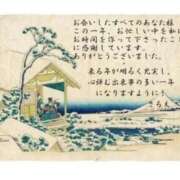 お会いしたすべてのあなた様
この一年、お忙しい中を私に
お時間を作って下さったこと
に感謝しています
ありがとうございました。
来る年が明るく充実し、
心休む出来事に
なりますように
きらん